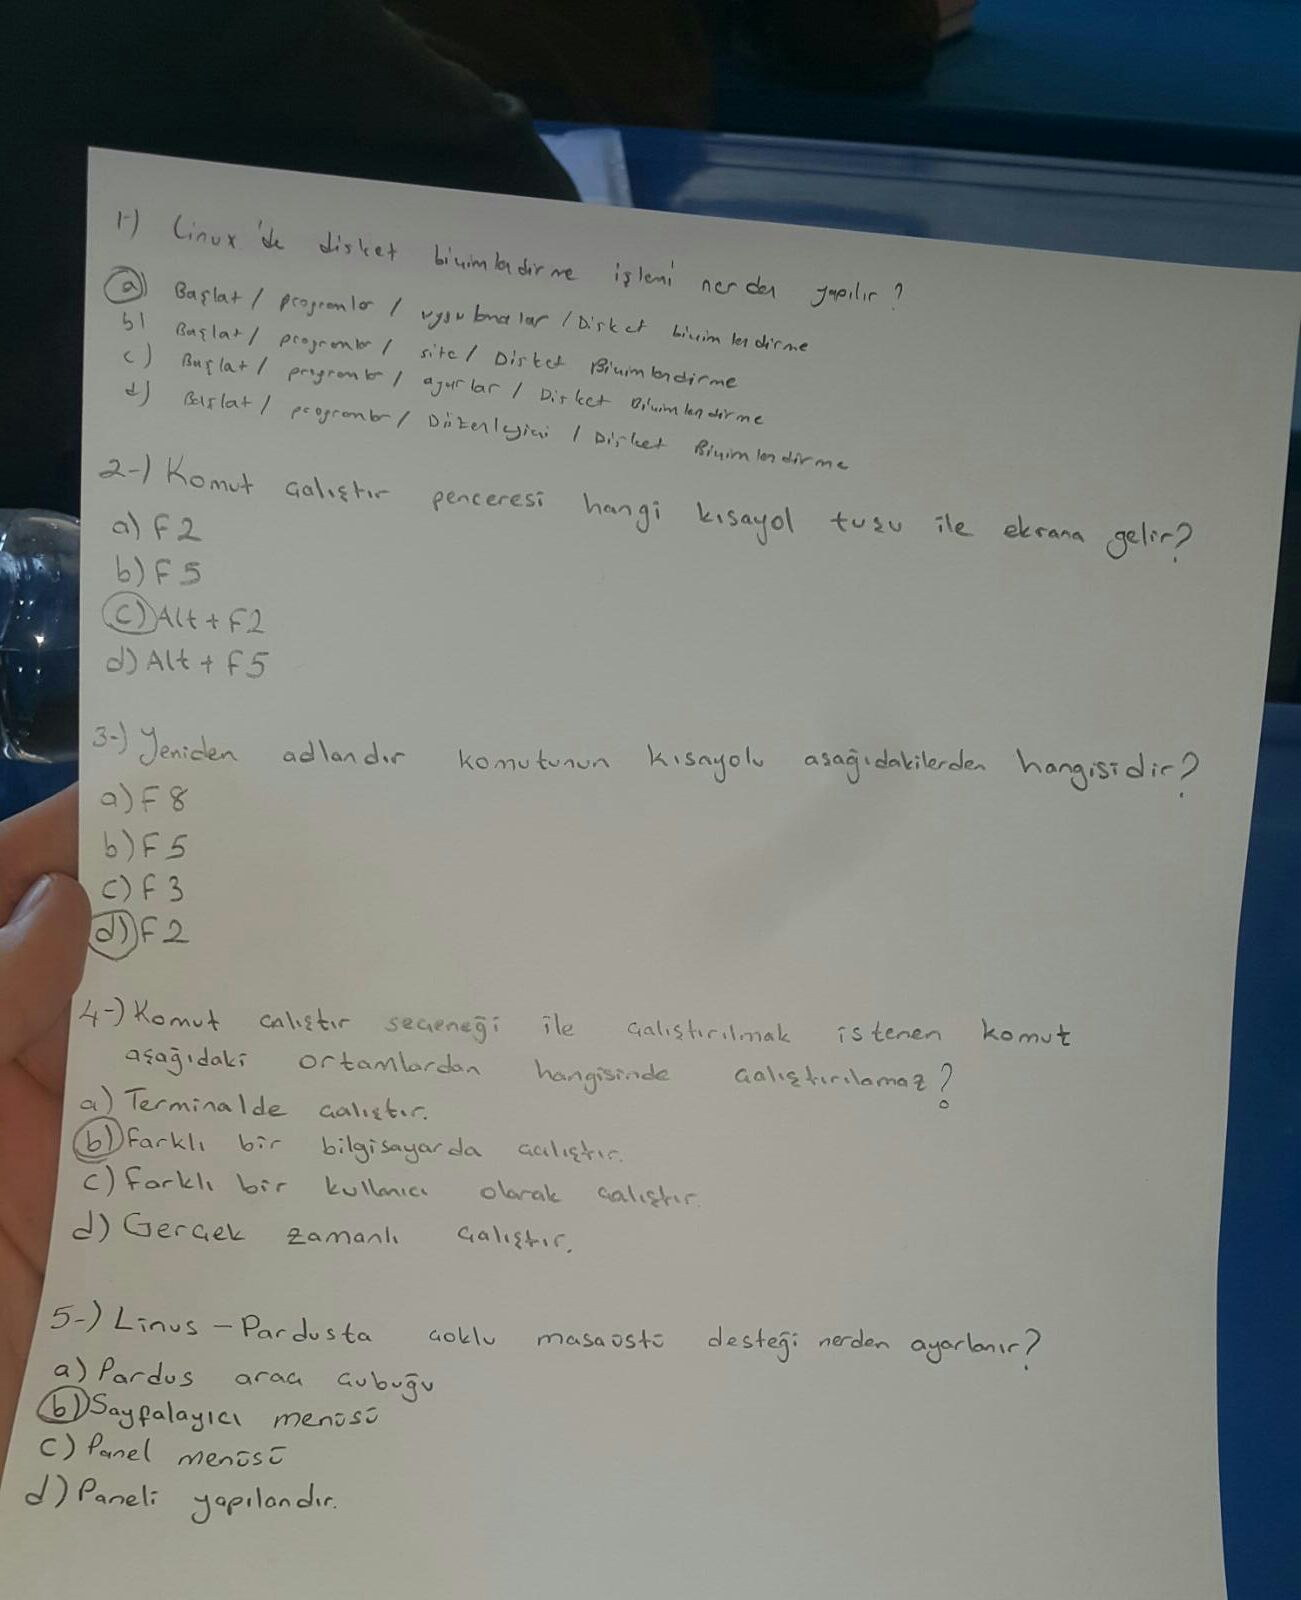 1-) Linux'de disket biçimlendirme işlemi nerden yapılır?
a) Başlat / programlar / uygulamalar / Disket biçimlendirme
b) Başlat / programlar / site / Disket Biçimlendirme
c) Başlat / programlar / ayarlar / Disket Biçimlendirme
d) Başlat / programlar / Düzenleyici / Disket Biçimlendirme
2-) Komut çalıştır penceresi hangi kısayol tuşu ile ekrana gelir?
a) F2
b) F5
c) Alt + F2
d) Alt + F5
3-) Yeniden adlandır komutunun kısayolu aşağıdakilerden hangisidir?
a) F8
b) F5
c) F3
d) F2
4-) Komut çalıştır seçeneği ile çalıştırılmak istenen komut
aşağıdaki ortamlardan hangisinde çalıştırılamaz?
a) Terminalde çalıştır.
b) Farklı bir bilgisayarda çalıştır.
c) Farklı bir kullanıcı olarak çalıştır.
d) Gerçek zamanlı çalıştır.
5-) Linus - Pardusta çoklu masaüstü desteği nerden ayarlanır?
a) Pardus araç çubuğu
b) Sayfalayıcı menüsü
c) Panel menüsü
d) Paneli yapılandır.